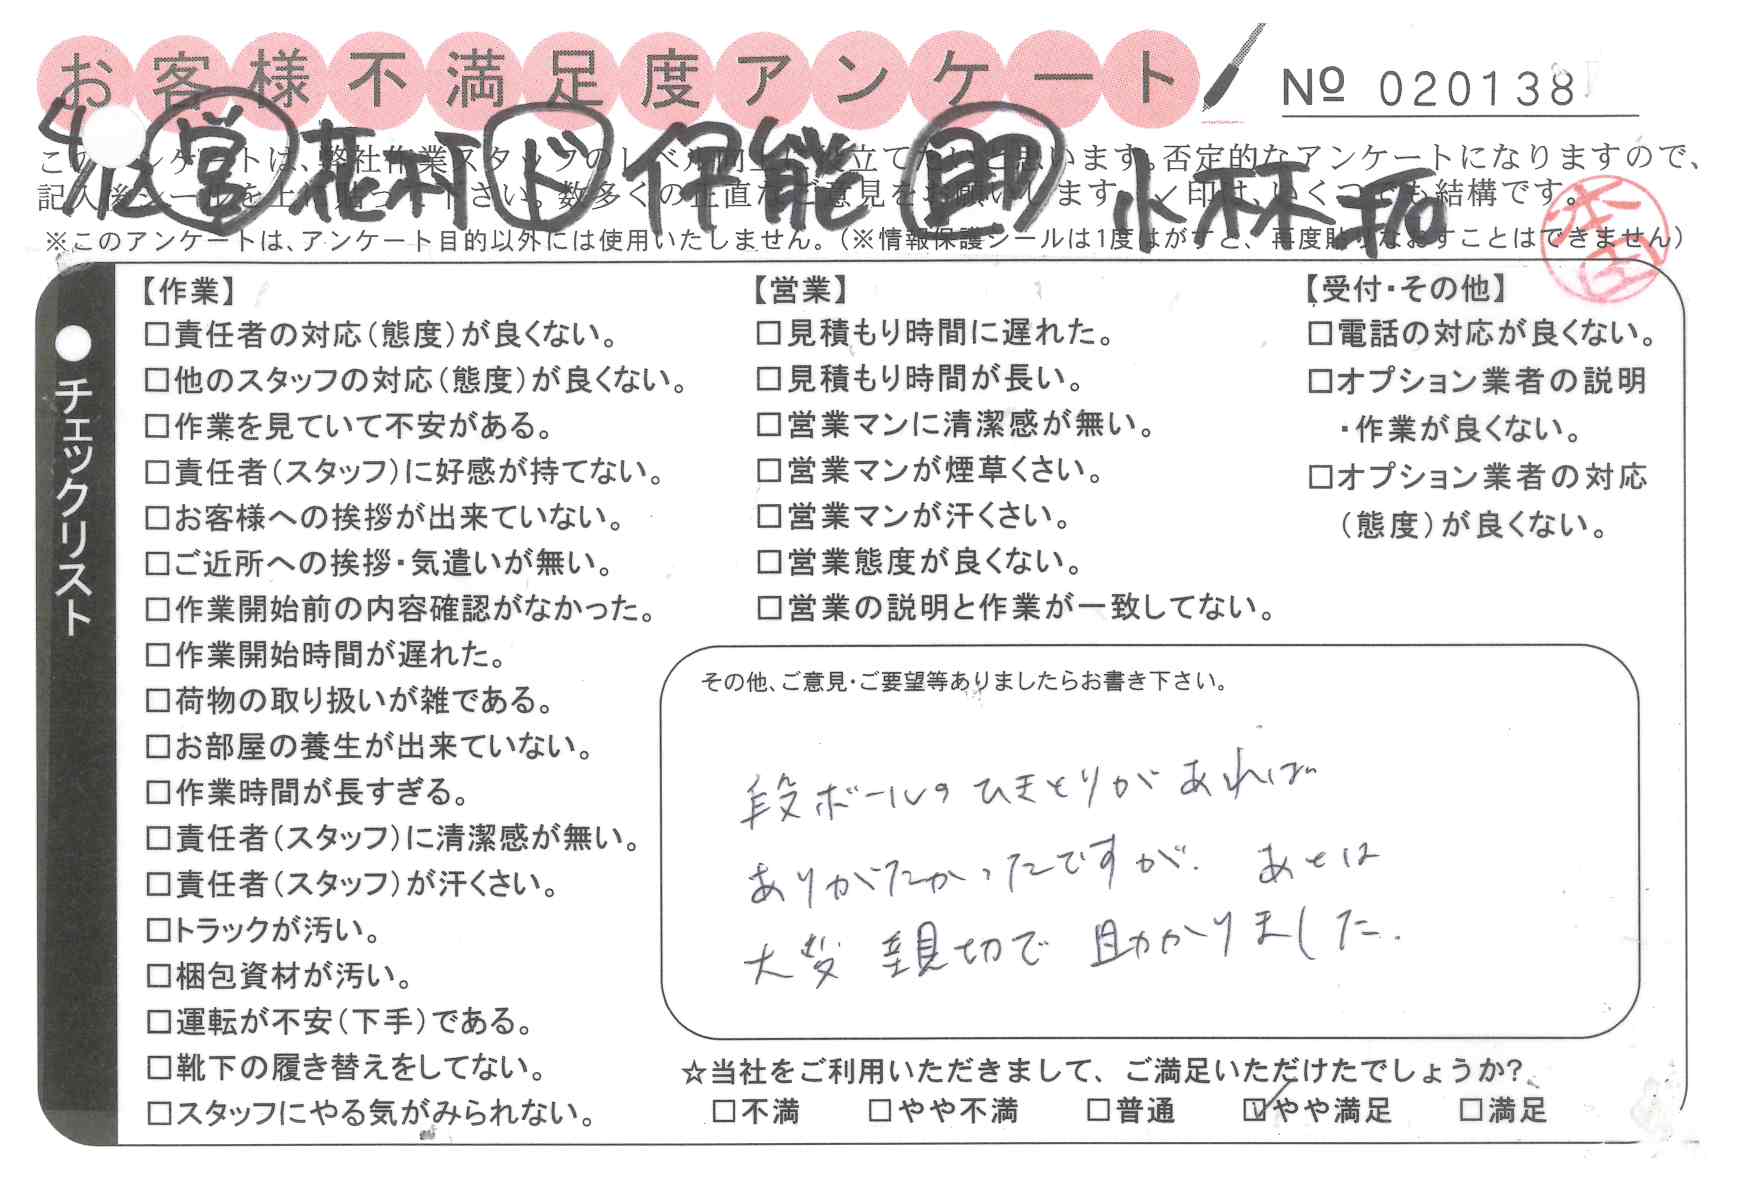 お客様不満足度アンケート
№ 020138
4/12 営 花村 ド 伊能 助 小林拓
このアンケートは、弊社作業スタッフのレベル向上に役立てたいと思います。否定的なアンケートになりますので、
記入後シールを上に貼って下さい。数多くの正直なご意見をお願いします。✓印は、いくつでも結構です。
※このアンケートは、アンケート目的以外には使用いたしません。(※情報保護シールは1度はがすと、再度貼りなおすことはできません)
●チェックリスト
【作業】
□責任者の対応(態度)が良くない。
□他のスタッフの対応(態度)が良くない。
□作業を見ていて不安がある。
□責任者(スタッフ)に好感が持てない。
□お客様への挨拶が出来ていない。
□ご近所への挨拶・気遣いが無い。
□作業開始前の内容確認がなかった。
□作業開始時間が遅れた。
□荷物の取り扱いが雑である。
□お部屋の養生が出来ていない。
□作業時間が長すぎる。
□責任者(スタッフ)に清潔感が無い。
□責任者(スタッフ)が汗くさい。
□トラックが汚い。
□梱包資材が汚い。
□運転が不安(下手)である。
□靴下の履き替えをしてない。
□スタッフにやる気がみられない。
【営業】
□見積もり時間に遅れた。
□見積もり時間が長い。
□営業マンに清潔感が無い。
□営業マンが煙草くさい。
□営業マンが汗くさい。
□営業態度が良くない。
□営業の説明と作業が一致してない。
【受付・その他】
□電話の対応が良くない。
□オプション業者の説明
・作業が良くない。
□オプション業者の対応
(態度)が良くない。
その他、ご意見・ご要望等ありましたらお書き下さい。
段ボールのひきとりがあれば
ありがたかったですが、あとは
大変 親切で 助かりました.
☆当社をご利用いただきまして、ご満足いただけたでしょうか?
□不満 □やや不満 □普通 ☑やや満足 □満足